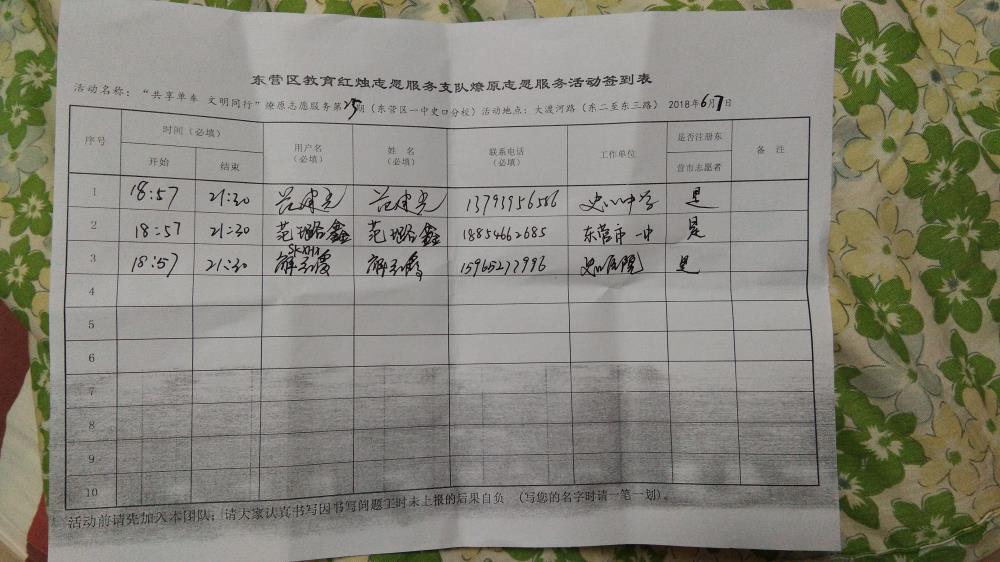 东营区教育红烛志愿服务支队燎原志愿服务活动签到表
活动名称：“共享单车 文明同行”燎原志愿服务第25期（东营区一中史口分校）活动地点：大渡河路（东二至东三路） 2018年6月7日
序号 时间（必填） 用户名（必填） 姓 名（必填） 联系电话（必填） 工作单位 是否注册东营市志愿者 备 注
开始 结束
1 18:57 21:30 范建光 范建光 史口中学 是
2 18:57 21:30 范璐鑫 范璐鑫 18854662685 东营市一中 是
3 18:57 21:30 15965277996 史口医院 是
4
5
6
7
8
9
10
活动前请先加入本团队；请大家认真书写因书写问题工时未上报的后果自负 （写您的名字时请一笔一划）。